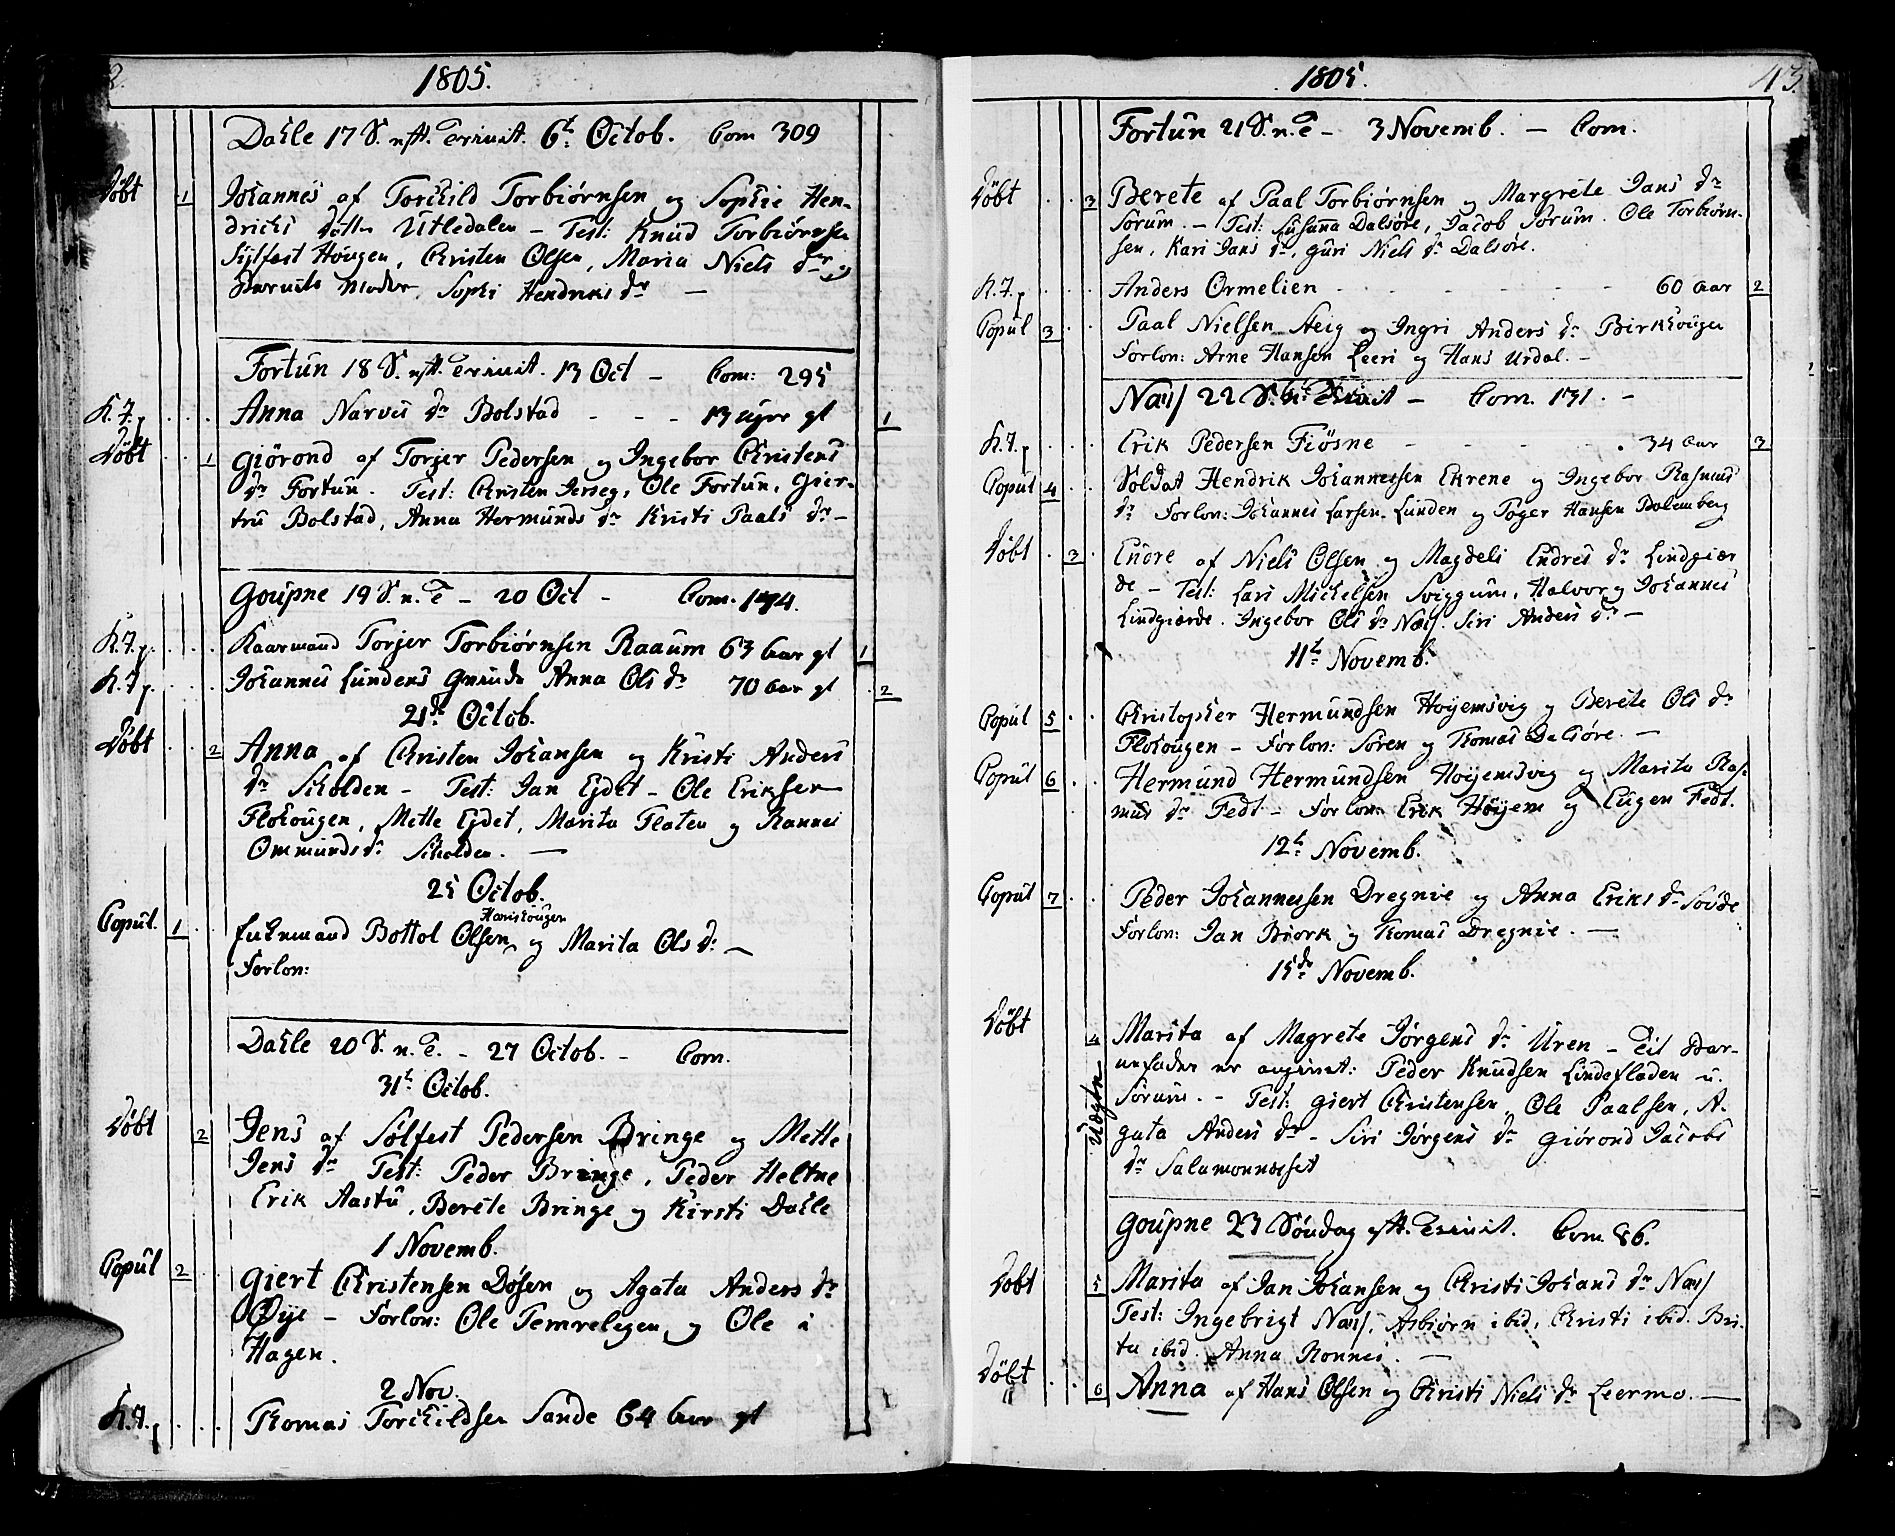 2.
1805.
Dahle 17 S. eft. Trinit. 6t Octob. Com 309
Døbt 1 Johannes af Torchild Torbiørnsen og Sophie Hen-
drichs Dotter Utledalen - Test: Knud Torbiørnsen
Sylfest Høugen, Christen Olsen, Maria Niels Dr og
Barnets Moder Sophi Hendriks dr -
Fortun 18 S. eft. Trinit. 13 Oct - Com: 295
K.J.p. Anna Narves dr Bolstad - - - 13 uger gl 1
Døbt 1 Giørond af Torjer Pedersen og Ingebor Christens
dr Fortun. Test: Christen Jerseg, Ole Fortun, Gier-
tru Bolstad, Anna Hermunds dr Kristi Paals dr -
Goupne 19 S. n. T - 20 Oct - Com. 174.
K.J.p. Kaarmand Torjer Torbiørnsen Raaum 63 Aar gl 1
K.J.p. Johannes Lundens Qvinde Anna Ols dr 70 Aar gl 2
21de Octob.
Døbt 2 Anna af Christen Johansen og Kristi Anders
dr Skolden - Test: Jan Ejdet - Ole Eriksen
Flohougen, Mette Ejdet, Marita Flaten og Rannei
Ommunds dr Skolden. -
25 Octob.
Hanshougen
Copul. 1 Enkemand Bottol Olsen og Marita Ols dr -
Forlov:
Dahle 20 S. n. T. - 27 Octob. - Com.
31t Octob.
Døbt 2 Jens af Sølfest Pedersen Bringe og Mette
Jens dr Test: Peder Bringe, Peder Heltne
Erik Aastu, Berete Bringe og Kirsti Dahle
1 Novemb.
Copul 2 Giert Christensen Døsen og Agata Anders dr
Øye - Forlov: Ole Temrelegen og Ole i
Hagen.
2 Nov.
K.J.p Thomas Torchildsen Sande 64 Aar gl
1805.
43.
Fortun 21 S. n. T - 3 Novemb. - Com.
Døbt 3 Berete af Paal Torbiørnsen og Margrete Jans dr
Sorum. - Test: Susanna Dalsøre, Jacob Sorum. Ole Torbiørn-
sen, Kari Jans dr, Guri Niels dr Dalsøre.
K.J.p Anders Ormelien - - - - - 60 Aar 2
Copul 3 Paal Nielsen Steig og Ingri Anders dr Birkhouger
Forlov: Arne Hansen Leeri og Hans Urdal. -
Næss 22 S. n. Trinit - Com. 131. -
K.J.p Erik Pedersen Fiøsne - - - - 34 Aar 3
Copul 4 Soldat Hendrik Johannessen Ekrene og Ingebor Rasmus
dr Forlov: Johannes Larsen Lunden og Toger Hansen Bolemberg
Døbt 3 Endre af Niels Olsen og Magdeli Endres dr Lindgiær
de - Test: Lars Mickelsen Sviggum, Halvor og Johannes
Lindgiærde. Ingebor Ols dr Næss. Siri Anders dr -
11t Novemb.
Copul 5 Christopher Hermundsen Høyemsvig og Berete Ols dr
Flohougen - Forlov: Soren og Thomas Dalsøre. -
Copul 6 Hermund Hermundsen Høyemsvig og Marita Ras-
mus dr Fedt - Forlov: Erik Høyem og Eugen Fedt.
12t Novemb.
Copul 7 Peder Johannessen Dregnie og Anna Eriks dr Sovde
Forlov: Jan Biork og Thomas Dregnie. -
15de Novemb.
Døbt 4 Marita af Magrete Jørgens dr Uren - Til Bar-
nefader er angivet: Peder Knudsen Lindefladen u.
Sorum. - Test: Giert Christensen, Ole Paalsen, A-
gata Anders dr - Siri Jørgens dr Giørond Jacobs
dr Salamonnæset
Uægte
Goupne 23 Søndag eft. Trinit. Com. 86.
Døbt 5 Marita af Jan Johansen og Christi Johans dr Næss
Test: Ingebrigt Næss, Asbiørn ibid, Christi ibid. Bri-
ta ibid. Anna Ronnei. -
Døbt 6 Anna af Hans Olsen og Christi Niels dr Leermo. -